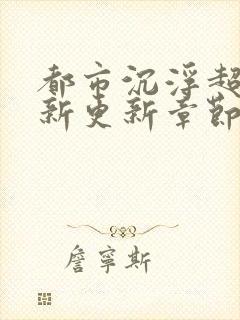 都市沉浮超
新更新章節
詹寧斯